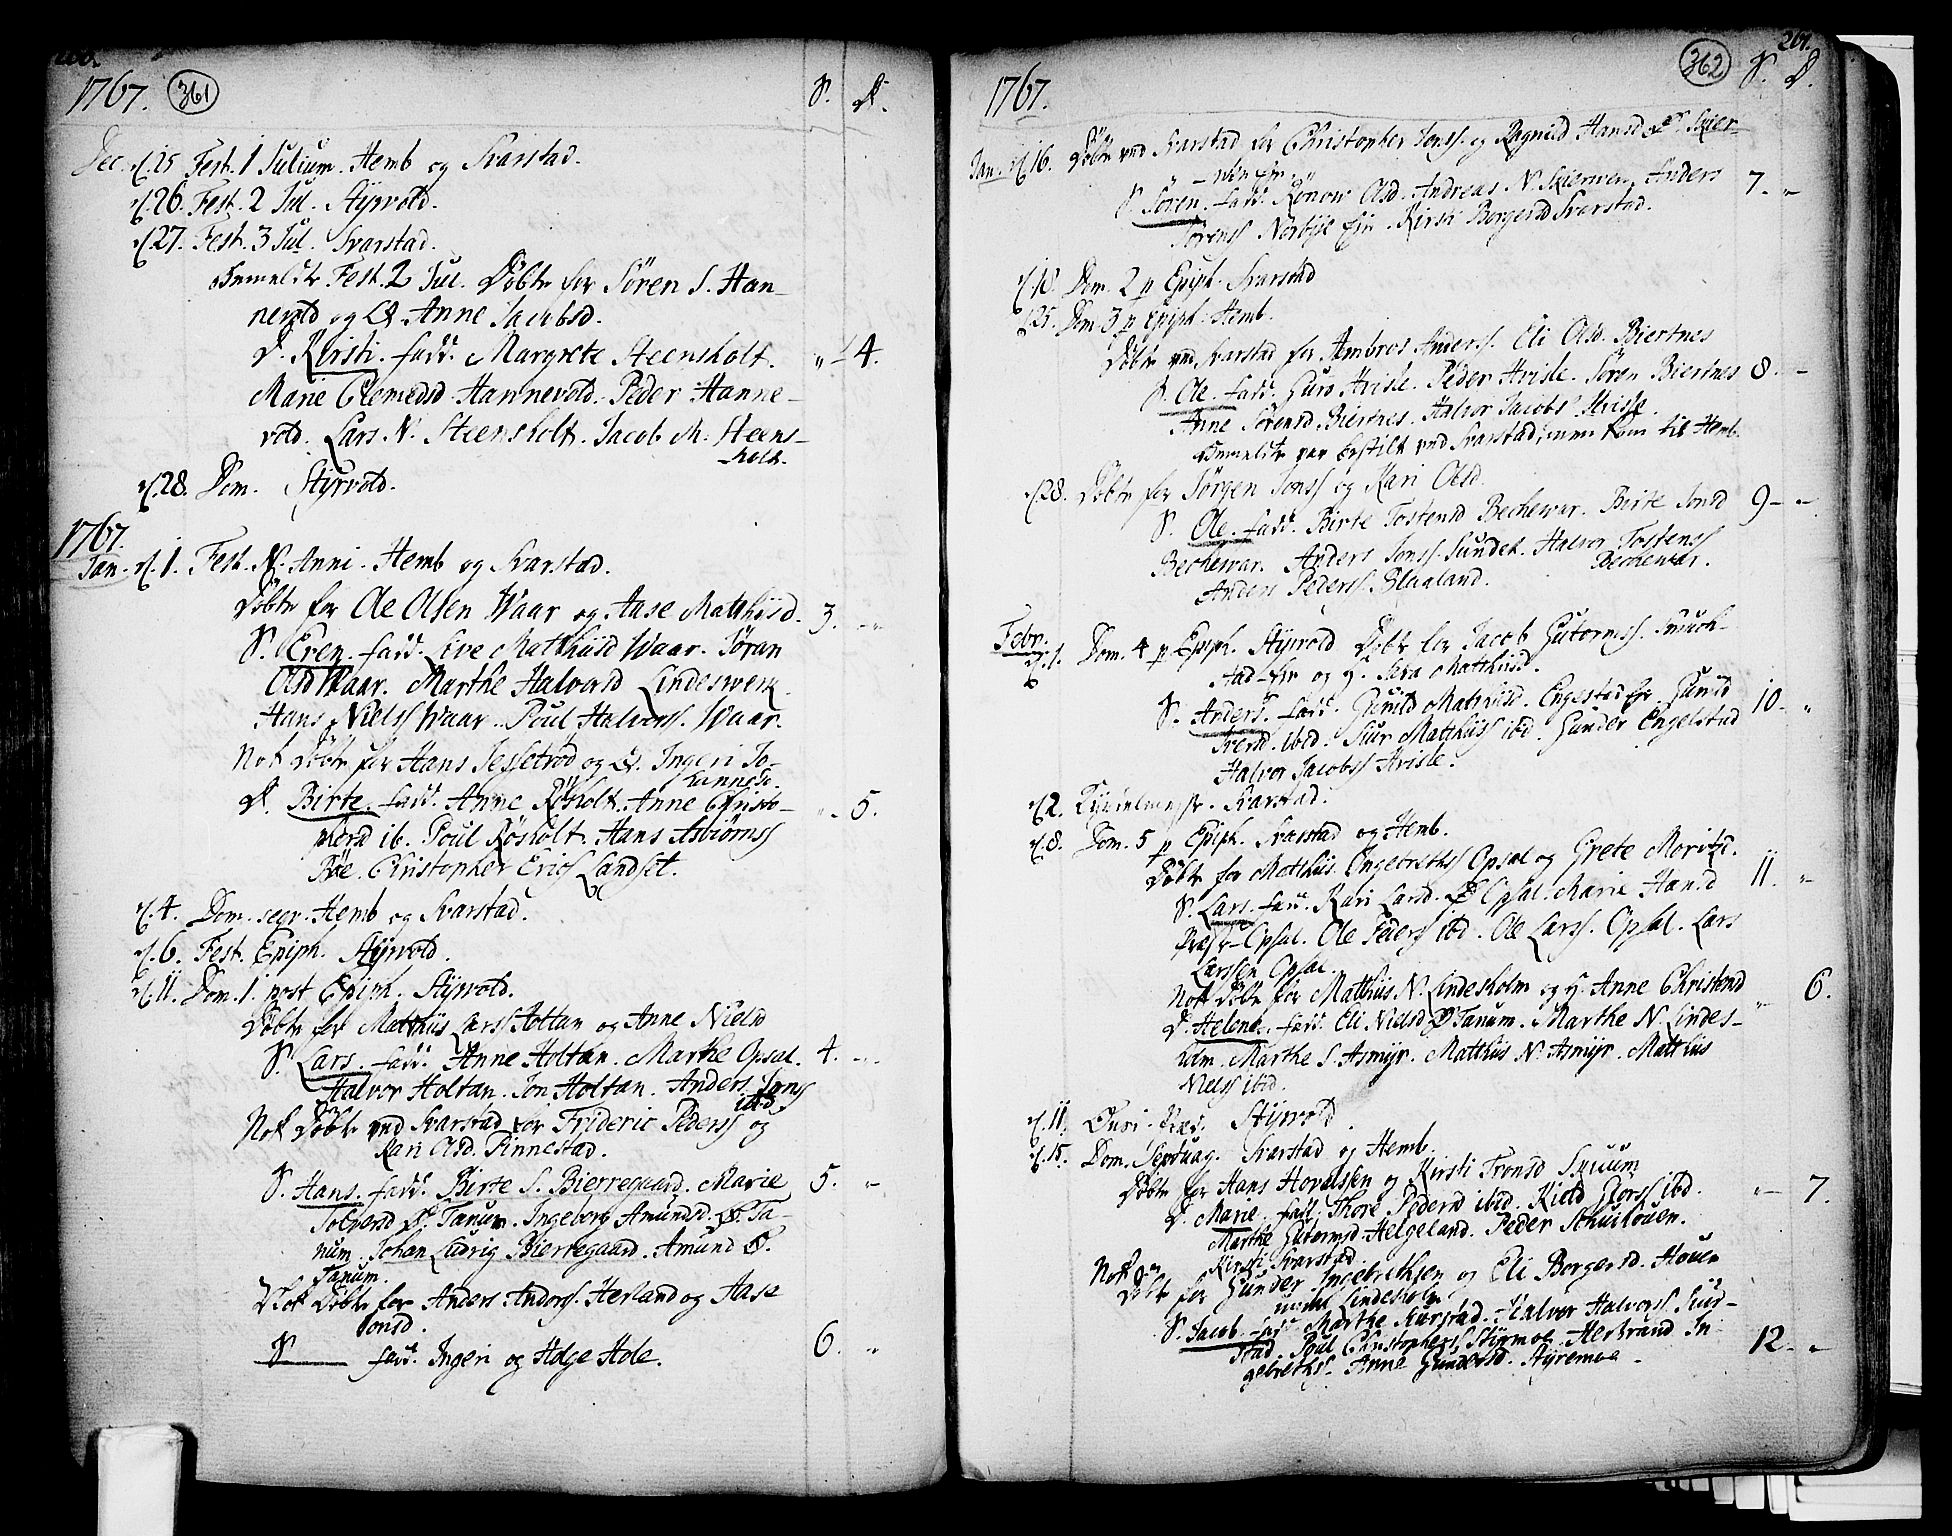 1767. 361 S. D.
Dec. d. 25 Fest. 1 Julium. Hemb og Svarstad.
d. 26. Fest. 2 Jul. Styrvold.
d. 27. Fest. 3 Jul. Svarstad.
Fest. 2 Jul. Döbte for Sören S. Han-
nevold og Anne Jacobsd.
D. Kirsti. fadd. Margrete Steensholt. " 4.
Marie Clemedsd Hannevold. Peder Hanne-
vold. Lars N. Steensholt. Jacob M. Steens-
holt.
d. 28. Dom. Styrvold.
1767.
Jan. d. 1. Fest. N. Anni. Hemb og Svarstad.
Döbte for Ole Olsen Waar og Aase Matthisd. 3. "
S. Even. fadd. Live Matthisd Waar. Söran
Olsd Waar. Marthe Halvorsd Lindeswerk.
Hans Nielss Waar. Poul Halvorss. Waar.
Nok Döbte for Hans Jessetröd og Ingeri Jo-
hannesd.
D. Birte. fadd. Anne Rösholt. Anne Christo- " 5.
phersd ib. Poul Rösholt. Hans Asbiörnss
Böe. Christopher Erics Landset.
d. 4. Dom. seqv. Hemb og Svarstad.
d. 6. Fest. Epiph. Styrvold.
d. 11. Dom. 1. post Epiph. Styrvold.
Döbte for Matthis Larss Holtan og Anne Nielsd
S. Lars. fadd. Anne Holtan. Marthe Opsal. 4. "
Halvor Holtan. Jon Holtan. Anders Jonss
ibid.
Nok Döbte ved Svarstad for Frideric Pederss og
Kari Olsd. Pinnestad.
S. Hans. fadd. Birte S. Bierregaard. Marie 5. "
Solversd Tanum. Ingeborg Amundsd. Ta-
num. Johan Ludvig Bierregaard. Amund O.
Tanum.
Nok Döbte for Anders Anderss. Herland og Aase
Jonsd.
S. fadd. Ingeri og Helge Hole. 6. "
1767. 362 S. D.
Jan. d. 16. Döbte ved Svarstad for Christopher Jonss. og Ragnild Hansd Skier-
ven
S. Sören. fadd. Rönow Olsd. Andreas N. Skierven. Anders 7. "
Sörenss Norbye Kirsti Borgersd Svarstad.
d. 18. Dom. 2 p Epiph. Svarstad
d. 25. Dom. 3 p Epiph. Hemb.
Döbte ved Svarstad for Ambros Anderss. Eli Olsd. Biertnes
S. Ole. fadd. Guro Hvisle. Peder Hvisle. Sören Biertnes 8. -
Anne Sörensd. Biertnes. Halvor Jacobs Hvisle.
var bestilt ved Svarstad, men kom til Hemb.
d. 28. Döbte for Jörgen Jonss og Kari Olsd.
S. Ole. fadd. Birte Tostensd Bechevar. Birte Jonsd 9. -
Bechevar. Anders Jonss. Sundet. Halvor Tostenss
Bechevar.
Anders Pederss. Blaaland.
Febr.
d. 1. Dom. 4 p Epiph. Styrvold Döbte for Jacob Gutormss. Smuch-
stad og Sara Matthisd.
S. Anders. fadd. Gunild Mathisd. Engestad Gunild 10. "
Iversd. ibid. Siur Matthiss ibd. Gunder Engelstad
Halvor Jacobss Hvisle.
d. 2. Kyndelmesse. Svarstad.
d. 8. Dom. 5 p Epiph. Svarstad og Hemb.
Döbte for Matthis Engebrethss Opsal og Grete Moritsd.
S. Lars. fadd. Kari Larsd. Opsal. Marie Hansd 11. "
Opsal. Ole Pederss ibd. Ole Larss. Opsal. Lars
Larssen Opsal.
Nok Döbte for Matthis N. Lindesholm og Anne Christensd
D. Helene. fadd. Eli Nielsd Tanum. Marthe N. Lindes- " 6.
holm. Marthe S. Asmyr. Matthis N. Asmyr. Matthis
Nielss ibid.
d. 11. Styrvold.
d. 15. Dom. Septuag. Svarstad og Hemb.
Döbte for Hans Hovelsen og Kirsti Tronsd
D. Marie. fadd. Thore Pedersd ibid. Kield ibd. " 7.
Marthe Gutormsd. Helgeland. Peder
Kirsti Svarstad
Nok Döbte for Gunder Ingebrethsen og Eli Borgersd. Houen
Lindesholm
S. Jacob. fadd. Marthe Svarstad. Halvor Halvorss Svar-
stad. Poul Christopherss Styrmoe. Herbrand In- 12. "
gebrethss. Anne Gundersd. Styremoe.